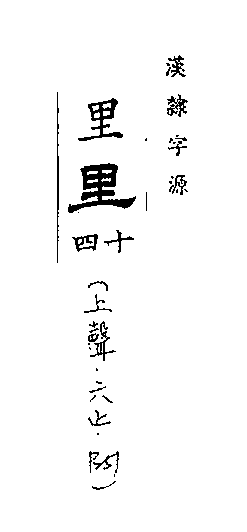 漢隸字源
里
里
十四
(上聲·六止·)